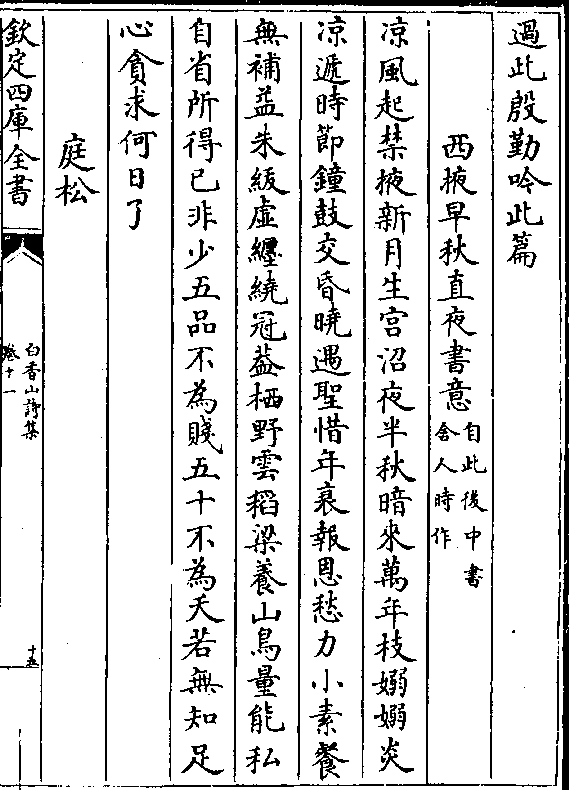 過此殷勤吟此篇
西掖早秋直夜書意自此後中書
舍人時作
凉風起禁掖新月生宫沼夜半秋暗來萬年枝嫋嫋炎
凉遞時節鐘鼓交昏曉遇聖惜年衰報恩愁力小素餐
無補益朱紱虚纒繞冠葢栖野雲稻粱養山鳥量能私
自省所得已非少五品不為賤五十不為夭若無知足
心貪求何日了
庭松
欽定四庫全書
白香山詩集
卷十一
十五